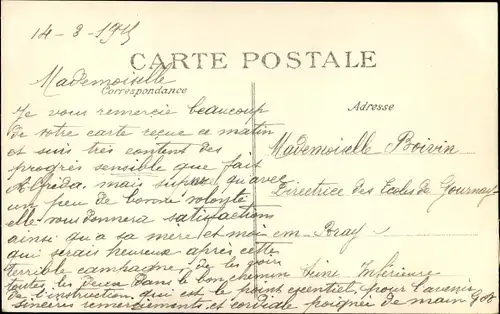 14-3-1915
CARTE POSTALE
Mademoiselle
Correspondance
Adresse
Je vous remercie beaucoup
de votre carte reçue ce matin
et suis très content des
progrès sensible que fait
mais qu'avec
un peu de bonne volonté
elle vous donnera satisfactions
ainsi qu'a sa mère et moi
qui serais heureux après cette
terrible campagne, de les voirs
toutes les deux dans le bon chemin
de l'instruction qui est le point essentiel pour l'avenir
sincères remerciements et cordiale poignée de main
Mademoiselle Boivin
Directrice des Ecoles de Gournay
em-Bray
Seine Inférieure